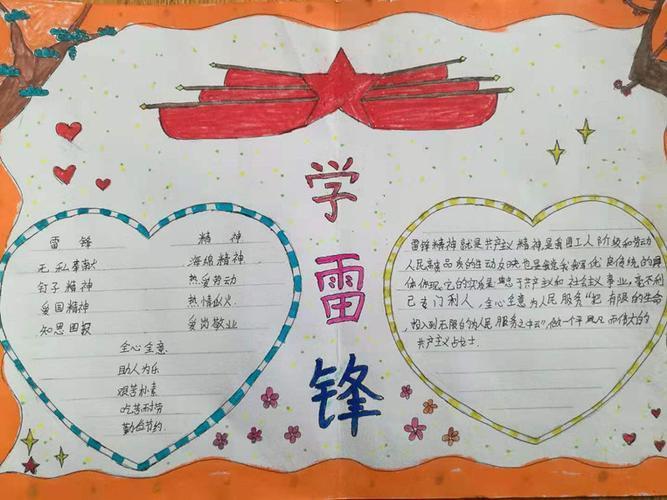 学
雷
锋
雷锋 精神
无私奉献 海绵精神
钉子精神 热爱劳动
爱国精神 热情似火
知恩图报 爱岗敬业
全心全意
助人为乐
艰苦朴素
吃苦耐劳
勤俭节约
雷锋精神就是共产主义精神,是我国工人阶级和劳动
人民高品质的生动反映也是我优良传统的
体现,它的实质是忠于共产主义和社会主义事业,毫不利
己专门利人,全心全意为人民服务"把有限的生命
投入到无限的为人民服务之中去",做一个平凡而伟大的
共产主义占士.